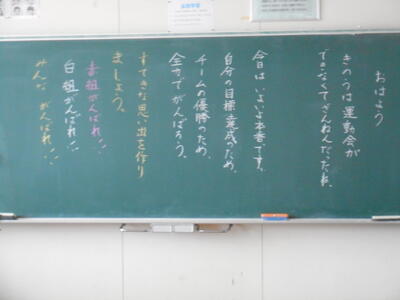 おはよう
きのうは運動会が
できなくてざんねんだったね。
今日は いよいよ本番です。
自分の目標達成のため、
チームの優勝のため、
全力でがんばろう。
すてきな思い出を作り
ましょう。
赤組がんばれ!!
白組がんばれ!!
みんな がんばれ!!